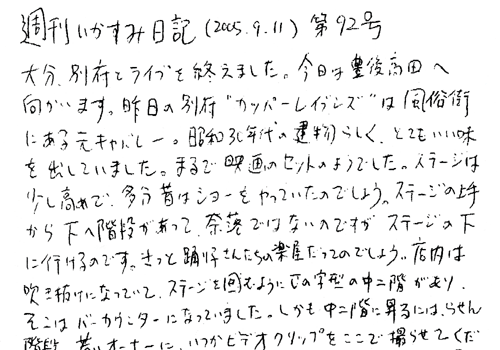 週刊いかすみ日記(2005.9.11) 第92号
大分、別府とライブを終えました。今日は豊後高田へ
向かいます。昨日の別府"カッパーレイブンズ"は風俗街
にある元キャバレー。昭和30年代の建物らしく、とてもいい味
を出していました。まるで映画のセットのようでした。ステージは
少し高めで、多分昔はショーをやっていたのでしょう。ステージの上手
から下へ階段があって、奈落ではないのですがステージの下
に行けるのです。きっと踊り子さんたちの楽屋だったのでしょう。店内は
吹き抜けになっていて、ステージを囲むようにコの字型の中二階があり、
そこはバーカウンターになっていました。しかも中二階に昇るには、らせん
階段。若いオーナーに、いつかビデオクリップをここで撮らせてくだ